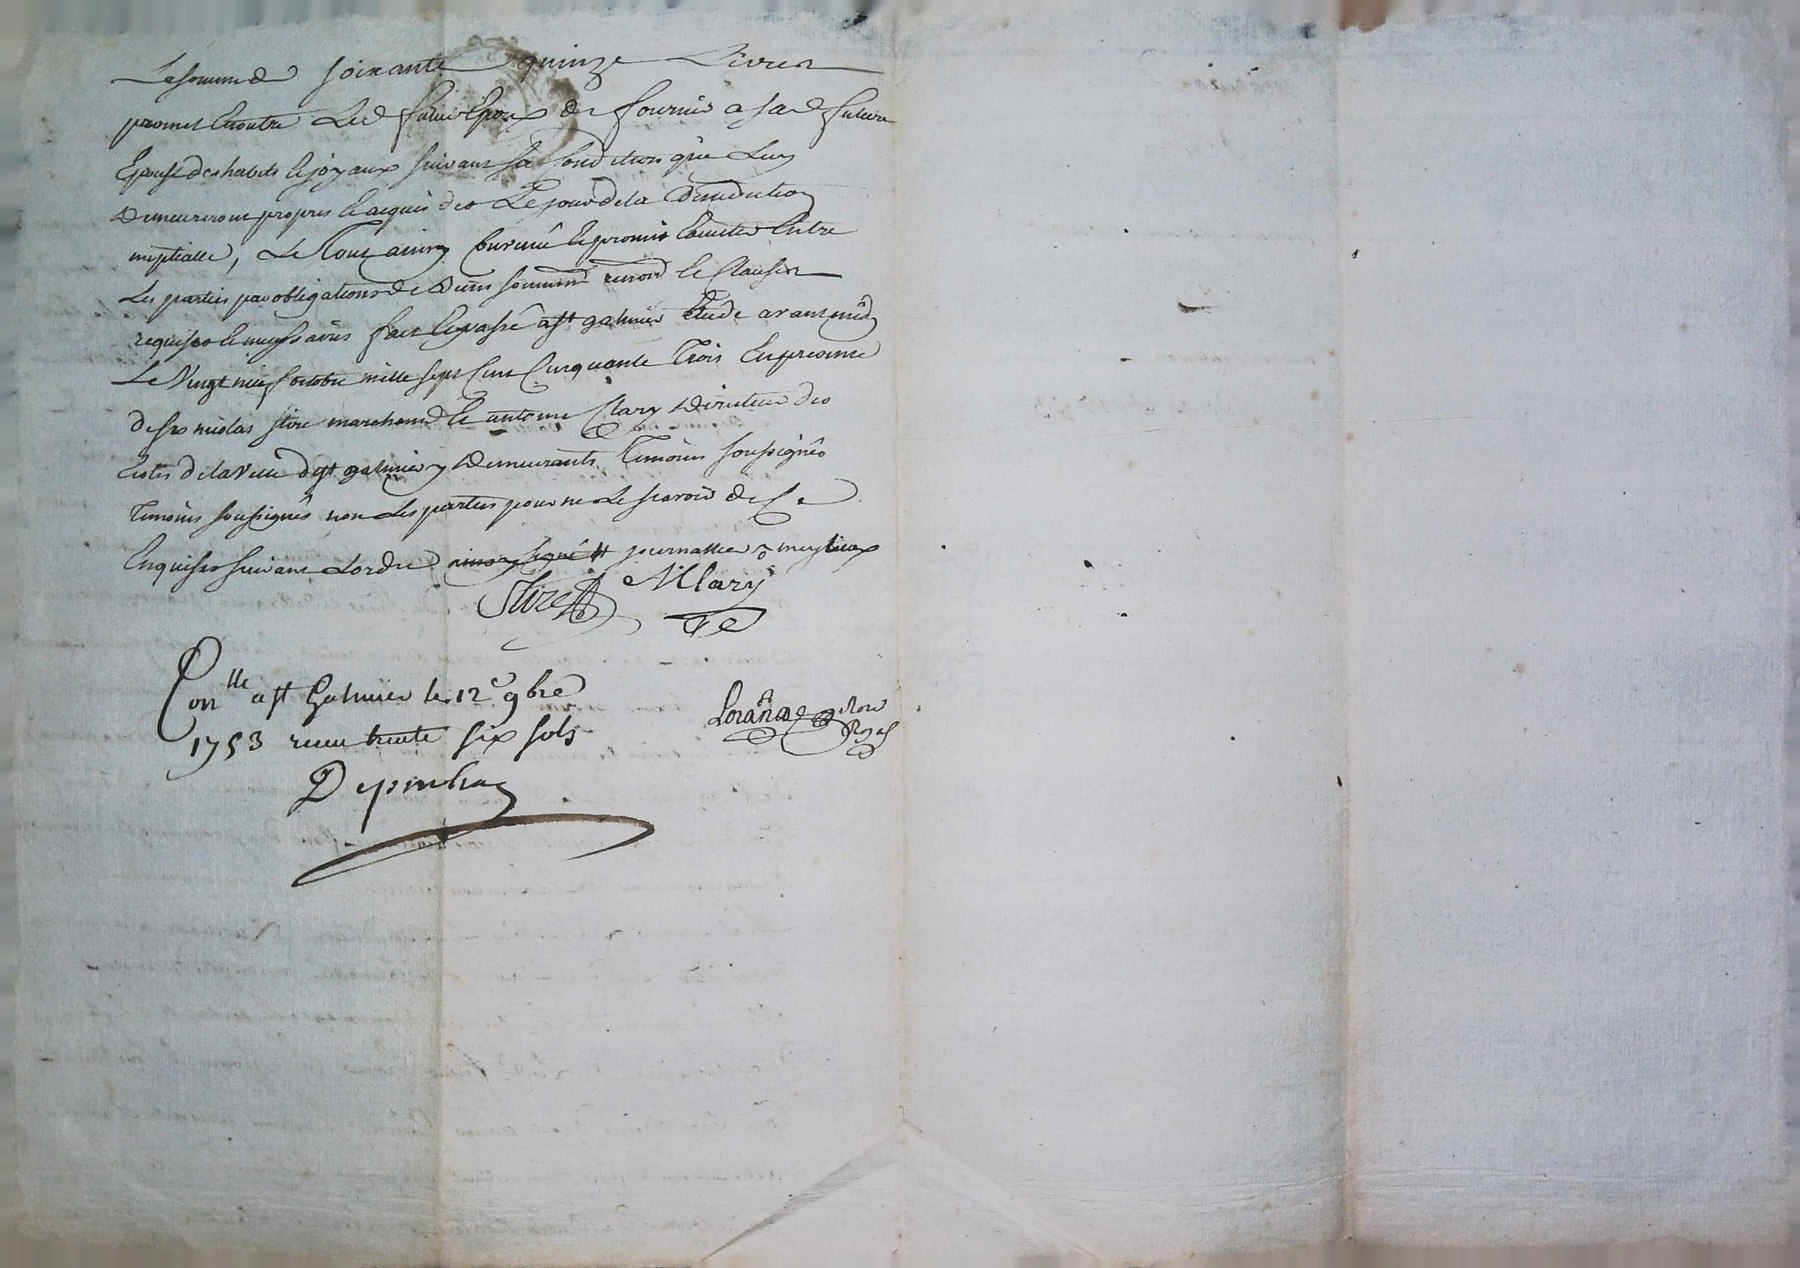 La somme de soixante quinze Livres
promet En outre Led futur Epoux de fournir a sa d future
Epouse des habits & joyaux suivant sa Condition que Luy
Demeureront propres & acquis des Le jour de la Benediction
nuptialle, Le Tout ainsy Convenû & promis Entre
Les parties par obligations de Biens soumissions renon & Clauses
requises & necessaires fait & passé a st galmier Etude avant midy
Le Vingt neuf octobre mille sept Cent Cinquante Trois En presence
de sr nicolas stire marchand & antoine Clary Directeur des
de la Ville de st galmier y Demeurants Temoins soussignés
Temoins soussignés non Les parties pour ne Le scavoir de Ce
Enquises suivant Lordre signé journallier
Stire A Clary
Conlle a st Galmier le 12e 9bre
1753 recu trente six sols
not
Royal